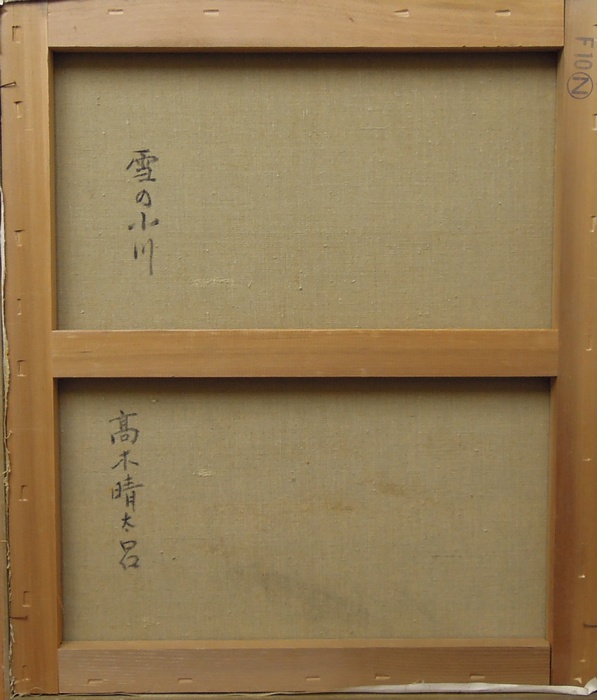 雪の小川
髙木晴太呂
F10Ⓝ